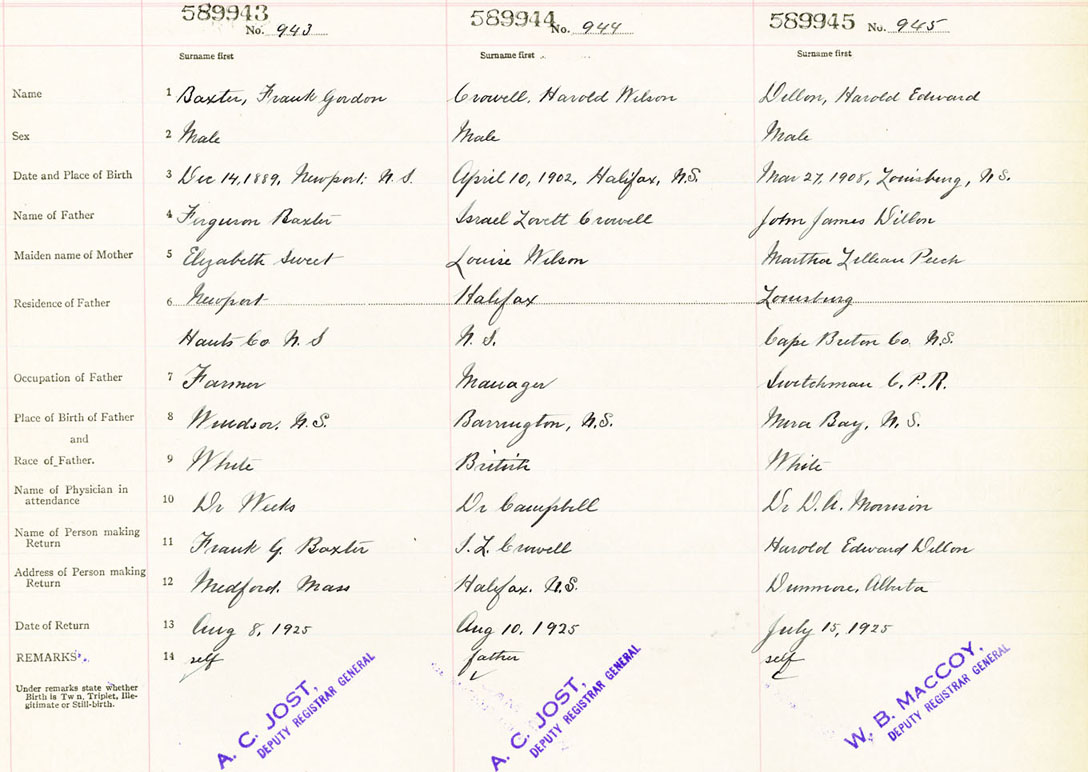 589943 589944 589945
No. 943 No. 944 No. 945
Surname first Surname first Surname first
Name 1 Baxter, Frank Gordon Crowell, Harold Wilson Dillon, Harold Edward
Sex 2 Male Male Male
Date and Place of Birth 3 Dec 14, 1889, Newport, N.S. April 10, 1902, Halifax, N.S. Mar 27, 1908, Louisburg, N.S.
Name of Father 4 Ferguson Baxter Israel Lovett Crowell John James Dillon
Maiden name of Mother 5 Elizabeth Sweet Louise Wilson Martha Lillian Peech
Residence of Father 6 Newport Halifax Louisburg
Hants Co N.S N.S. Cape Breton Co. N.S.
Occupation of Father 7 Farmer Manager Switchman C.P.R.
Place of Birth of Father 8 Windsor, N.S. Barrington, N.S. Mira Bay, N.S.
and
Race of Father. 9 White British White
Name of Physician in
attendance 10 Dr Weeks Dr Campbell Dr D.A. Morrison
Name of Person making
Return 11 Frank G. Baxter I.L. Crowell Harold Edward Dillon
Address of Person making
Return 12 Medford, Mass Halifax, N.S. Dunmore, Alberta
Date of Return 13 Aug 8, 1925 Aug 10, 1925 July 15, 1925
REMARKS 14 self father self
Under remarks state whether
Birth is Twin, Triplet, Ille-
gitimate or Still-birth.
A. C. JOST,
DEPUTY REGISTRAR GENERAL
A. C. JOST,
DEPUTY REGISTRAR GENERAL
W. B. MACCOY,
DEPUTY REGISTRAR GENERAL